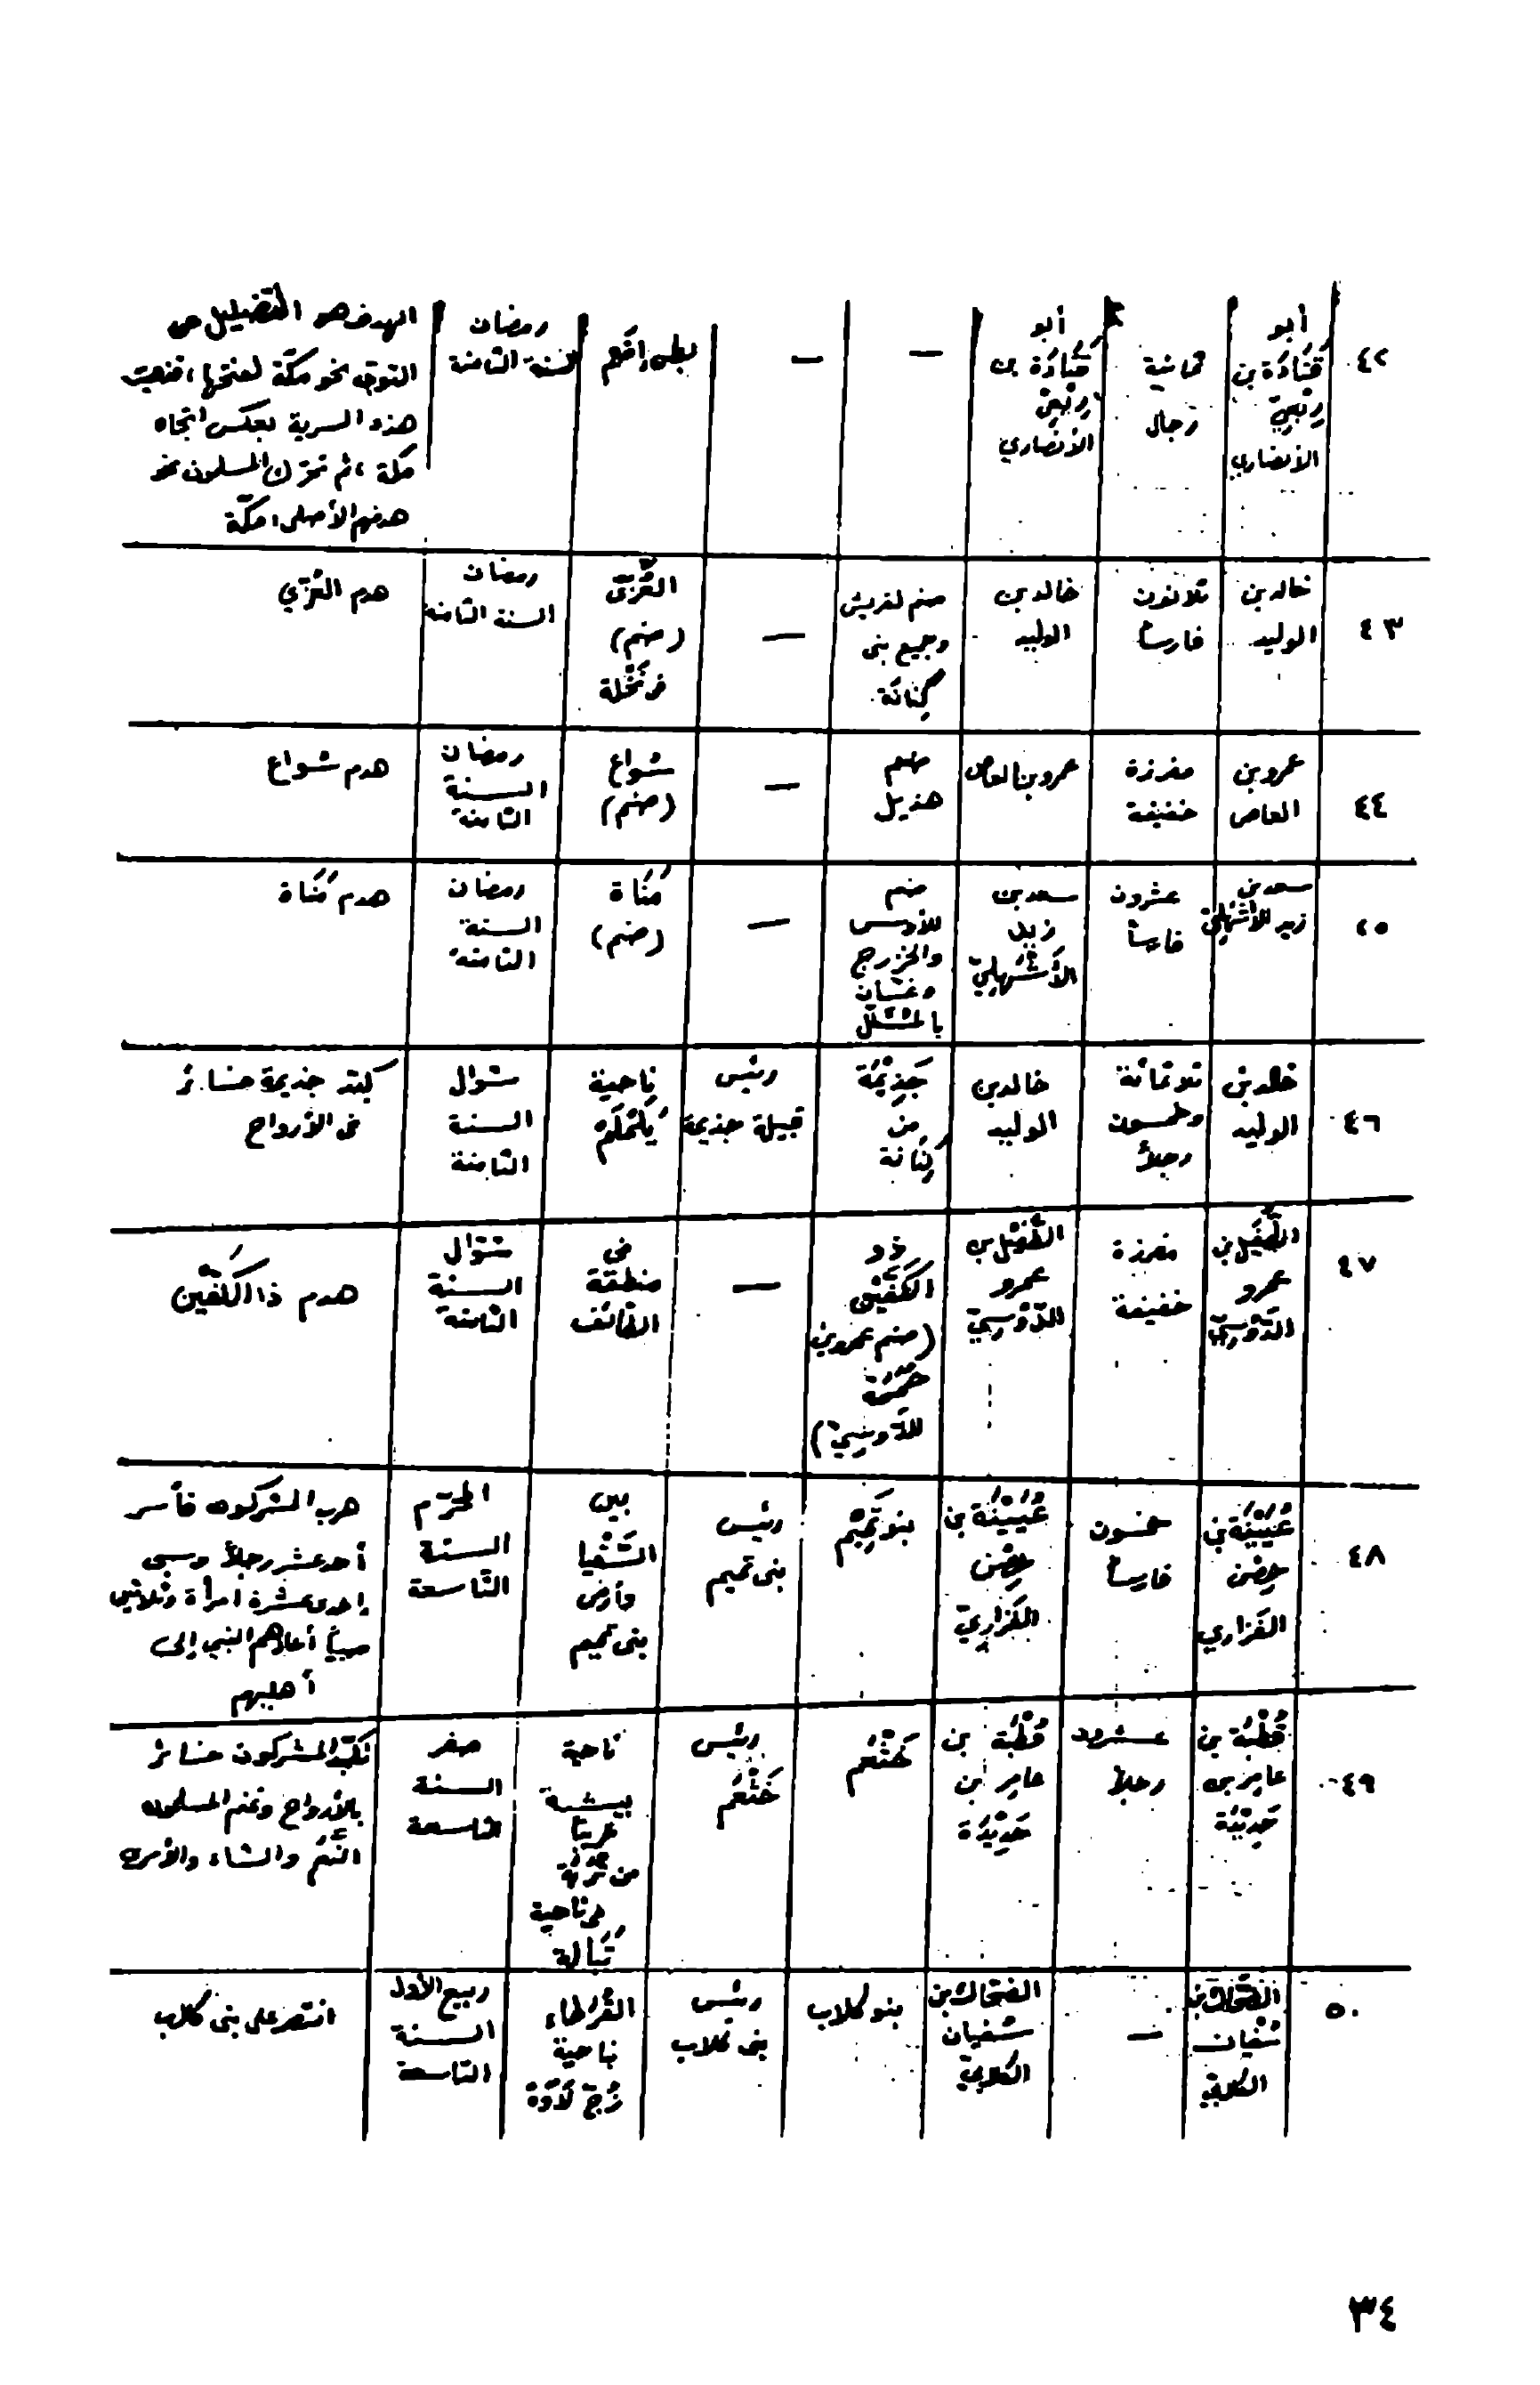 ٤٢
أبو
قَتَادَة بن
رِبْعِيّ
الأنصاري
ثمانية
رجال
أبو
قَتَادَة بن
رِبْعِيّ
الأنصاري
—
—
بطن إضَم
رمضان
السنة الثامنة
الهدف هو التضليل عن
التوجه نحو مكّة لفتحها، فذهبت
هذه السرية بعكس اتجاه
مكة، ثم تحرك المسلمون نحو
هدفهم الأصلي: مكّة
٤٣
خالد بن
الوليد
ثلاثون
فارساً
خالد بن
الوليد
صنم لقريش
وجميع بنى
كِنانَة
—
العُزّى
(صنم)
فى نَخْلة
رمضان
السنة الثامنة
هدم العُزّي
٤٤
عمرو بن
العاص
مفرزة
خفيفة
عمرو بن العاص
صنم
هذيل
—
سُواع
(صنم)
رمضان
السنة
الثامنة
هدم سُواع
٤٥
سعد بن
زيد الأشْهَلِيّ
عشرون
فارساً
سعد بن
زيد
الأَشْهَلِيّ
صنم
للأوس
والخزرج
وغسّان
بالمُشَلَّل
—
مَنَاة
(صنم)
رمضان
السنة
الثامنة
هدم مَنَاة
٤٦
خالد بن
الوليد
ثلاثمائة
وخمسون
رجلاً
خالد بن
الوليد
جَذِيْمَة
من
كِنَانَة
رئيس
قبيلة جذيمة
ناحية
يَلَمْلَم
شوال
السنة
الثامنة
كبّد جذيمة خسائر
فى الأرواح
٤٧
الطُّفَيْل بن
عمرو
الدَّوْسِيّ
مفرزة
خفيفة
الطُّفَيْل بن
عمرو
الدَّوْسِيّ
ذو
الكَفَّيْن
(صنم عمرو بن
حُمَمَة
الدَّوْسِيّ)
—
فى
منطقة
الطائف
شوّال
السنة
الثامنة
هدم ذا الكَفَّين
٤٨
عُيَيْنَة بن
حِصْن
الفزاري
خمسون
فارساً
عُيَيْنَة بن
حِصْن
الفَزاريّ
بنو تَمِيْم
رئيس
بنى تميم
بين
السُّقْيا
وأرض
بنى تميم
المحرّم
السنة
التّاسعة
هرب المشركون فأسر
أحد عشر رجلاً وسبى
إحدى عشرة امرأة وثلاثين
صبياً أعادهم النبي إلى
أهليهم
٤٩
قُطْبَة بن
عامر بن
حَدِيْدَة
عشرون
رجلاً
قُطْبَة بن
عامر بن
حَدِيْدَة
خَثْعَم
رئيس
خَثْعَم
ناحية
بيشة
قريباً
من تُرَبَة
فى ناحية
تَبَالة
صفر
السنة
التاسعة
تكبّد المشركون خسائر
بالأرواح وغنم المسلمون
النَّعَم والشاء والأسرى
٥٠
الضّحّاك بن
سُفْيان
الكلابي
—
الضحّاك بن
سُفيان
الكلابيّ
بنو كلاب
رئيس
بنى كلاب
القُرَطاء
ناحية
زُجّ لاوَة
ربيع الأول
السنة
التّاسعة
انتصر على بنى كلاب
٣٤